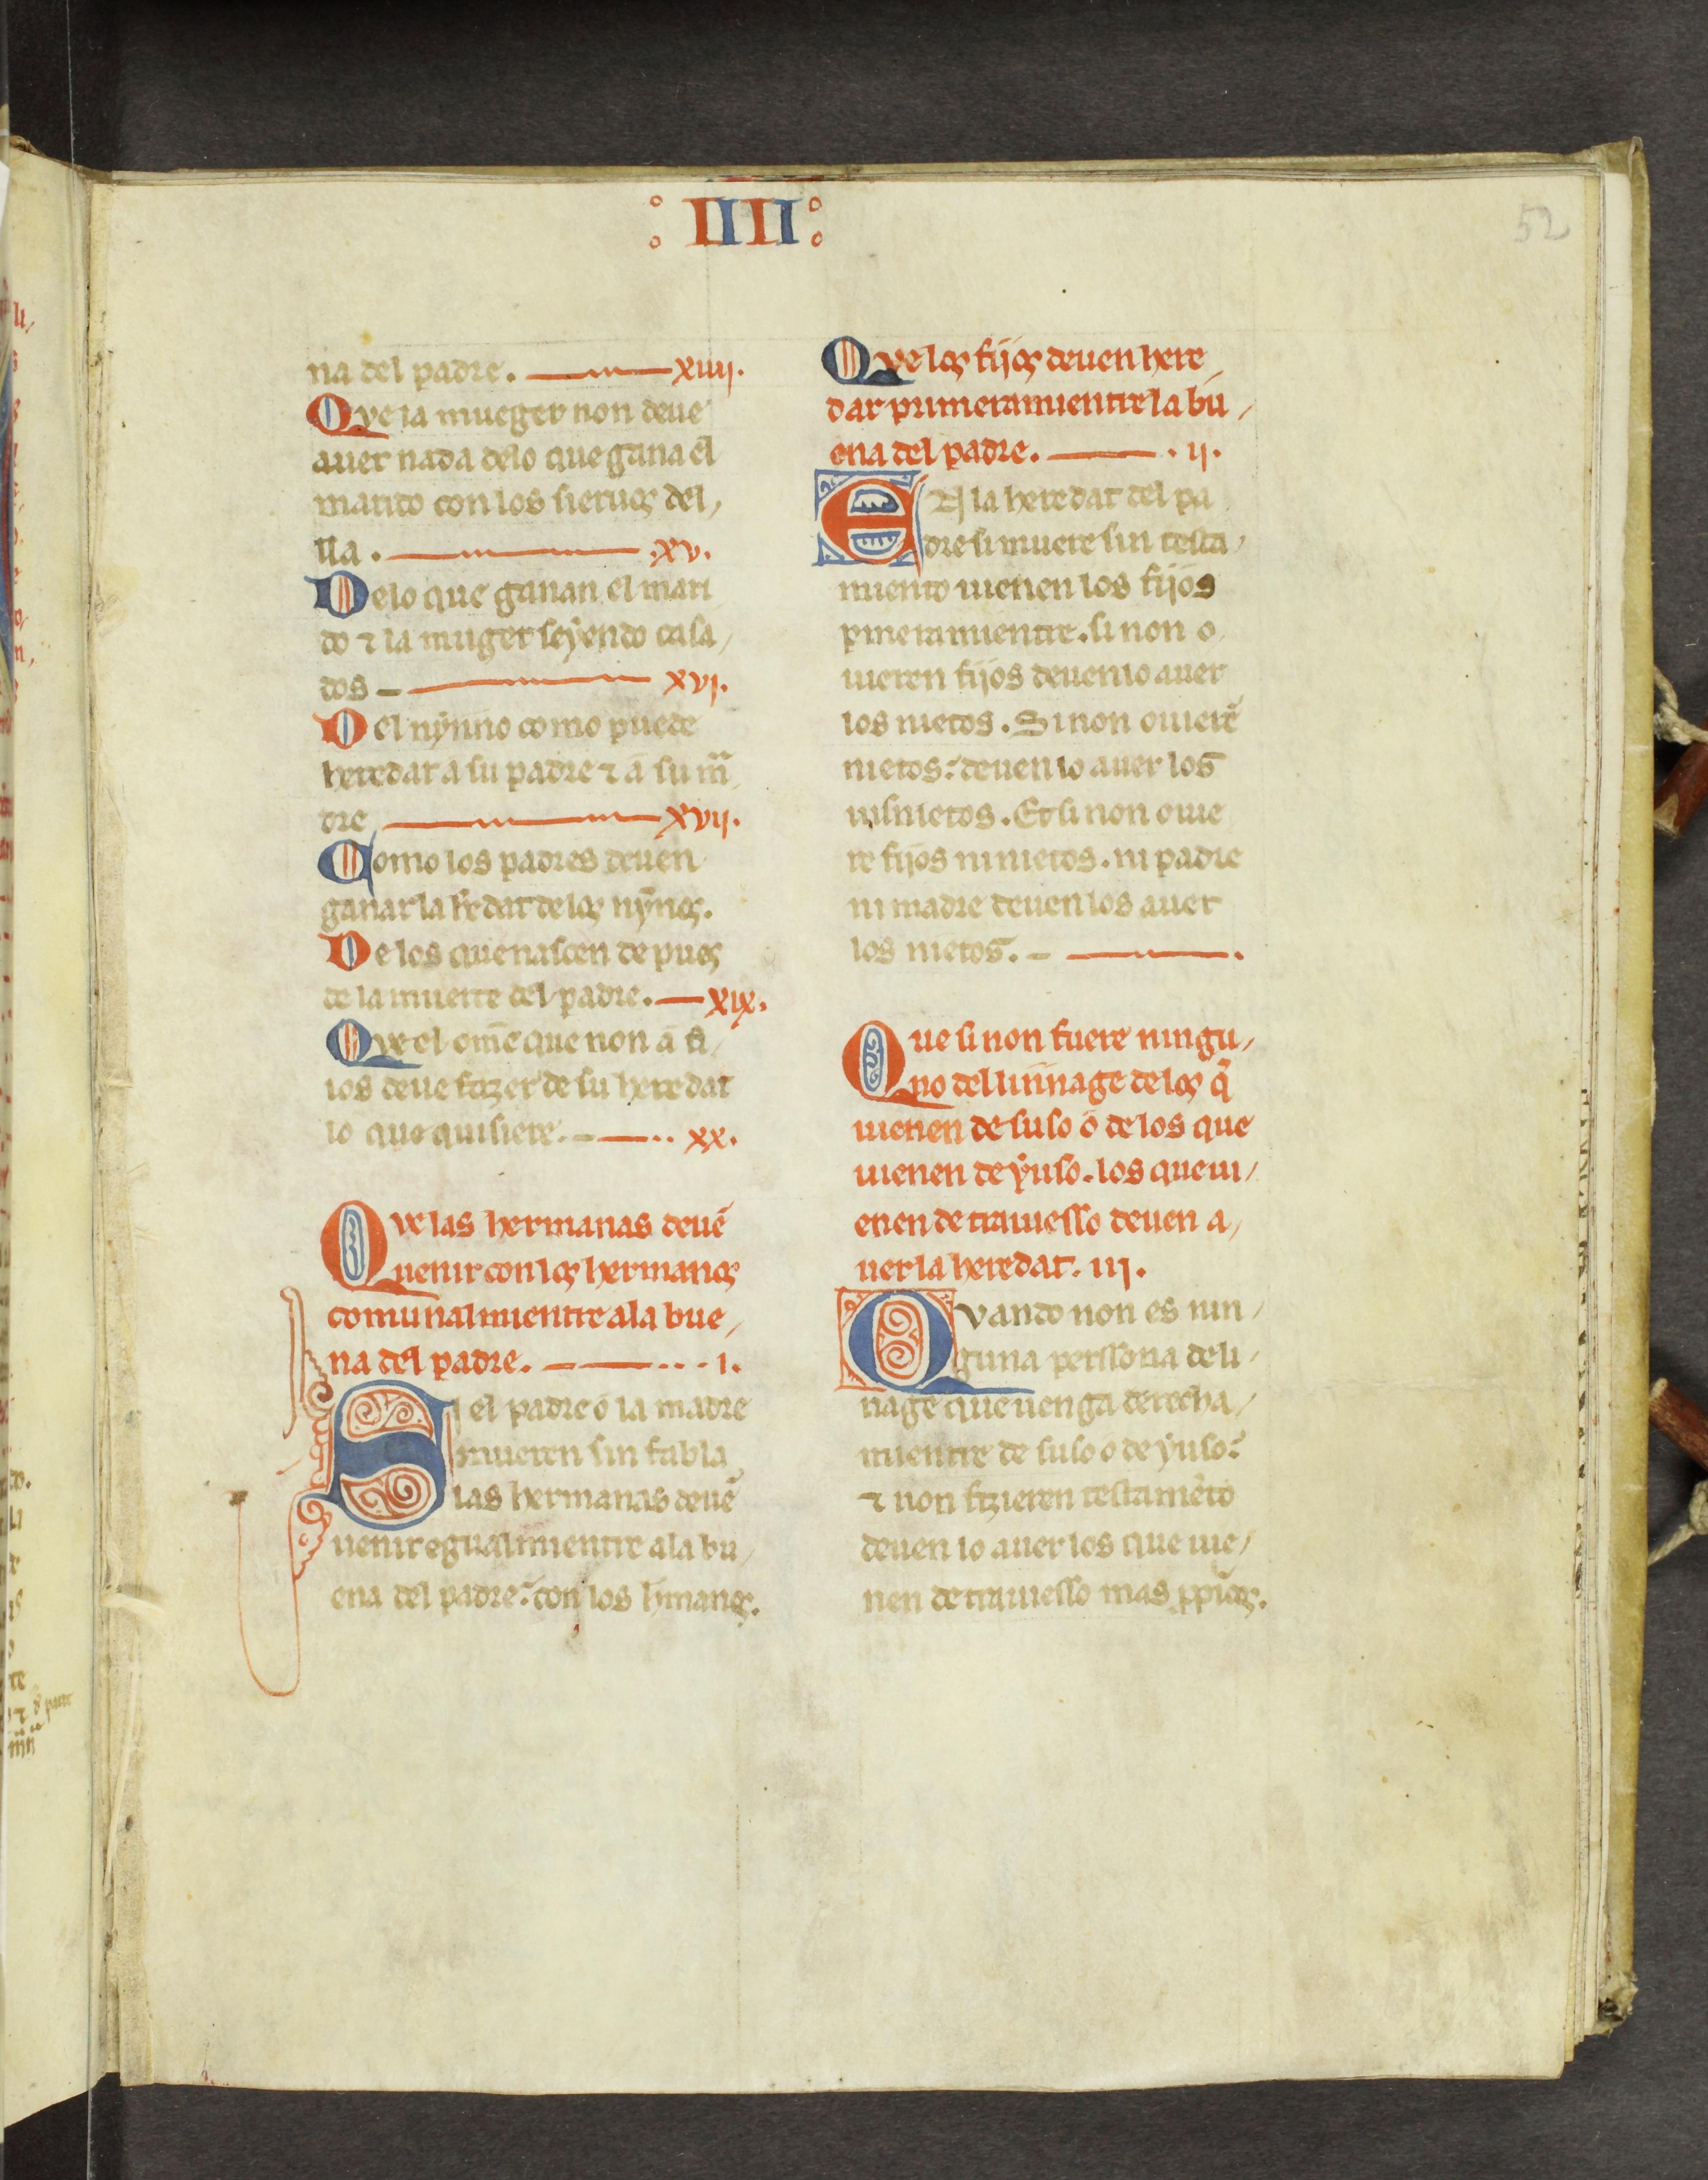 : IIII :
52
na del padre. xiiij.
Qve la mueger non deue
auer nada delo que gana el
marito con los sieruos del,
lla. .xv.
Delo que ganan el mari
do ⁊ la muger seẏendo casa,
dos xvj.
Del nẏnno como puede
heredar a su padre ⁊ a su ma
dre xvij.
Como los padres deuen
ganar la h̃edat delos nẏños.
De los que nascen de pues
de la muerte del padre. xix.
Qve el om̃e que non á fi,
ios deue fazer de su heredat
lo que quisiere. xx.
Qve las hermanas deuẽ
uenir con los hermanos
comunalmientre ala bue,
na del padre. .i.
Si el padre ó la madre
mueren sin fabla
las hermanas deuẽ
uenir egualmientre ala bu,
ena del padre: con los h̃manos.
Qve los fijos deuen here,
dar primeramientre la bu,
ena del padre. .ij.
EN la heredat del pa
dre si muere sin testa,
miento uienen los fijos
pmeramientre. si non o,
uieren fijos deuenlo auer
los nietos. Si non ouierẽ
nietos: deuen lo auer los
uisnietos. Et si non ouie
re fijos ni nietos. ni padre
ni madre deuenlos auer
los nietos.
Que si non fuere ningu,
no del linnage delos q̃
uienen de suso ó de los que
uienen de ẏuso. los que ui,
enen de trauiesso deuen a,
uer la heredat. iij.
Qvando non es nin,
guna perssona de li,
nage que uenga derecha,
mientre de suso ó de yuso:
⁊ non fizieren testamẽto
deuen lo auer los que uie,
nen de trauiesso mas ꝓpīcos.